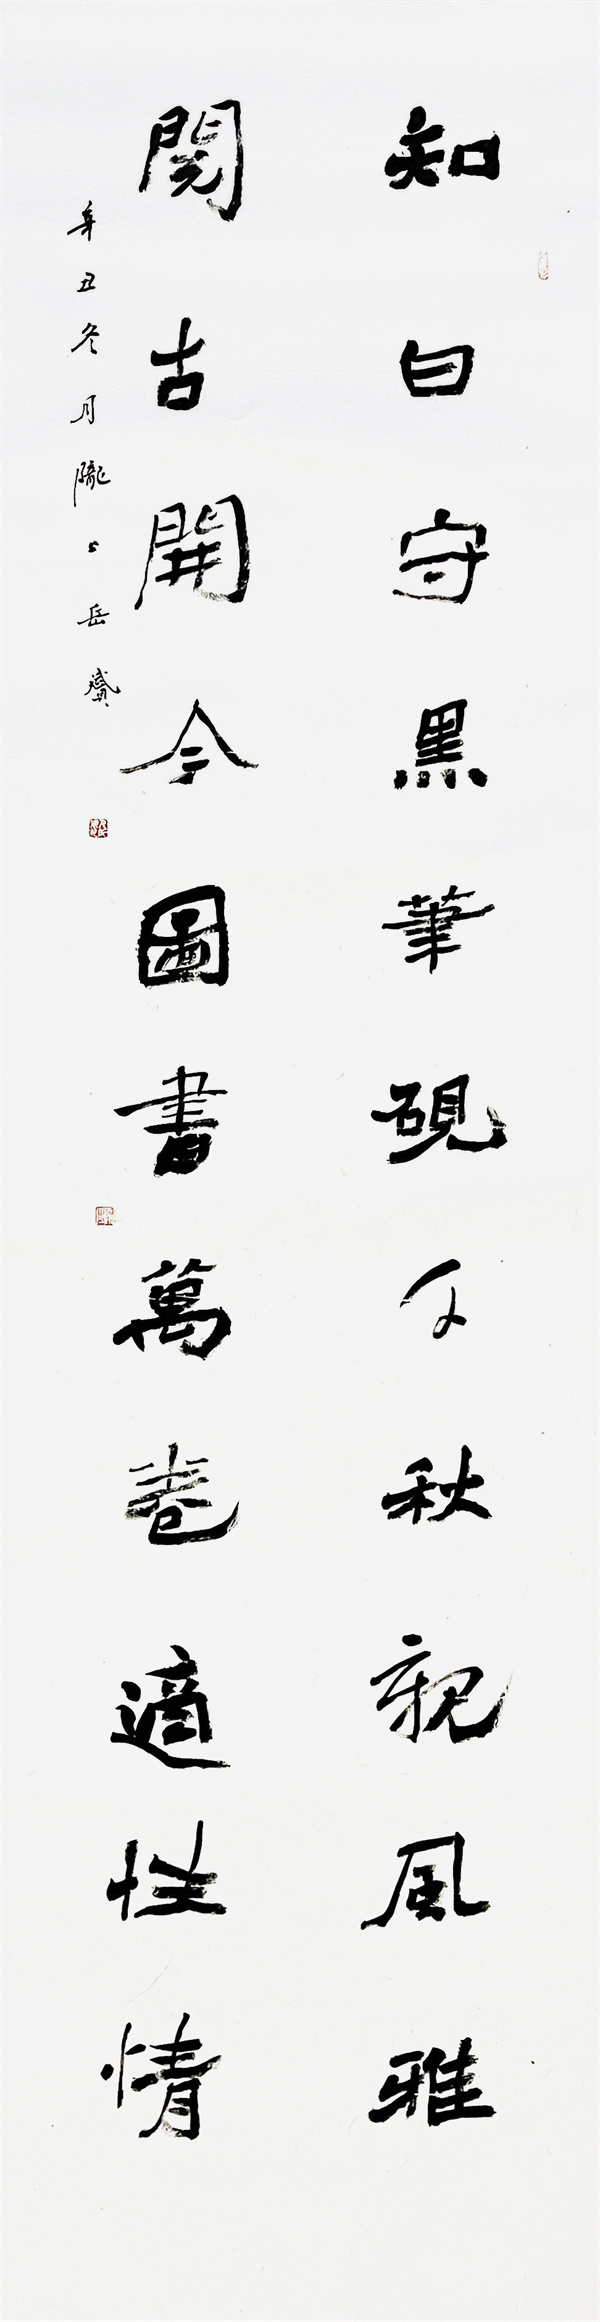 知白守黑筆硯千秋親風雅
閱古開今圖書萬卷適性情
辛丑冬月隴上岳贇